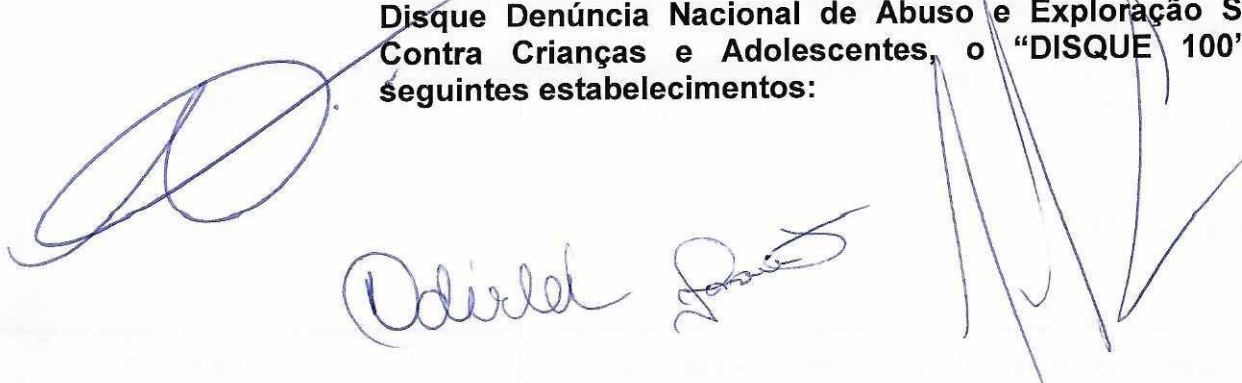 Disque Denúncia Nacional de Abuso e Exploração S
Contra Crianças e Adolescentes, o “DISQUE 100”
seguintes estabelecimentos:
Odirlei